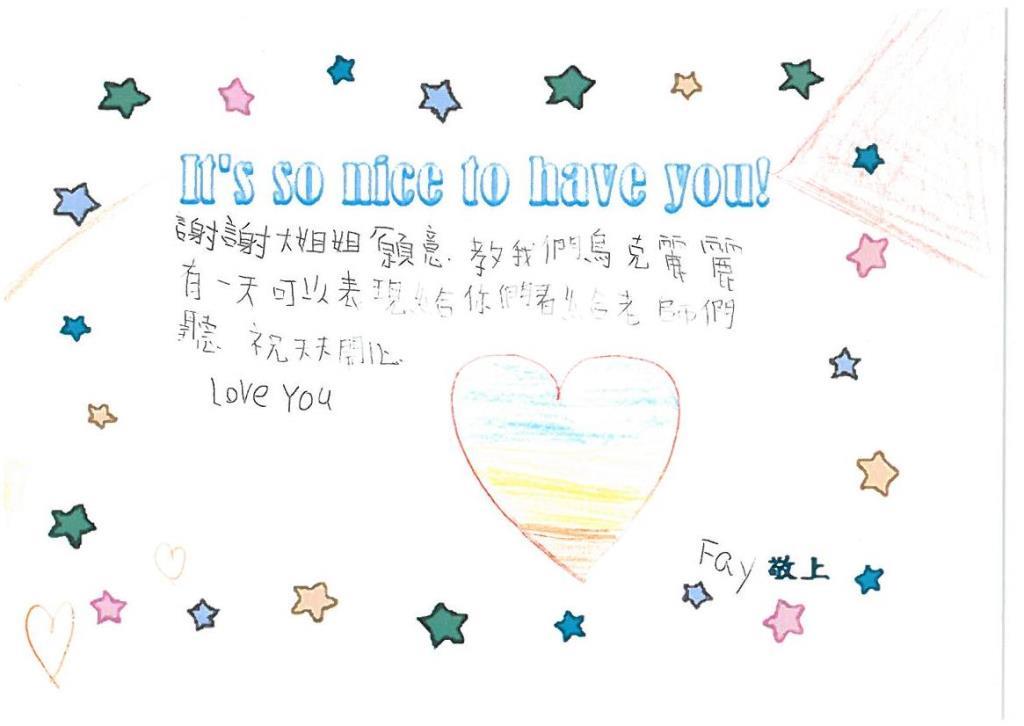 It's so nice to have you!
謝謝大姐姐願意教我們烏克麗麗
有一天可以表現給你們看給老師們
聽 祝天天開心
Love You
Fay 敬上